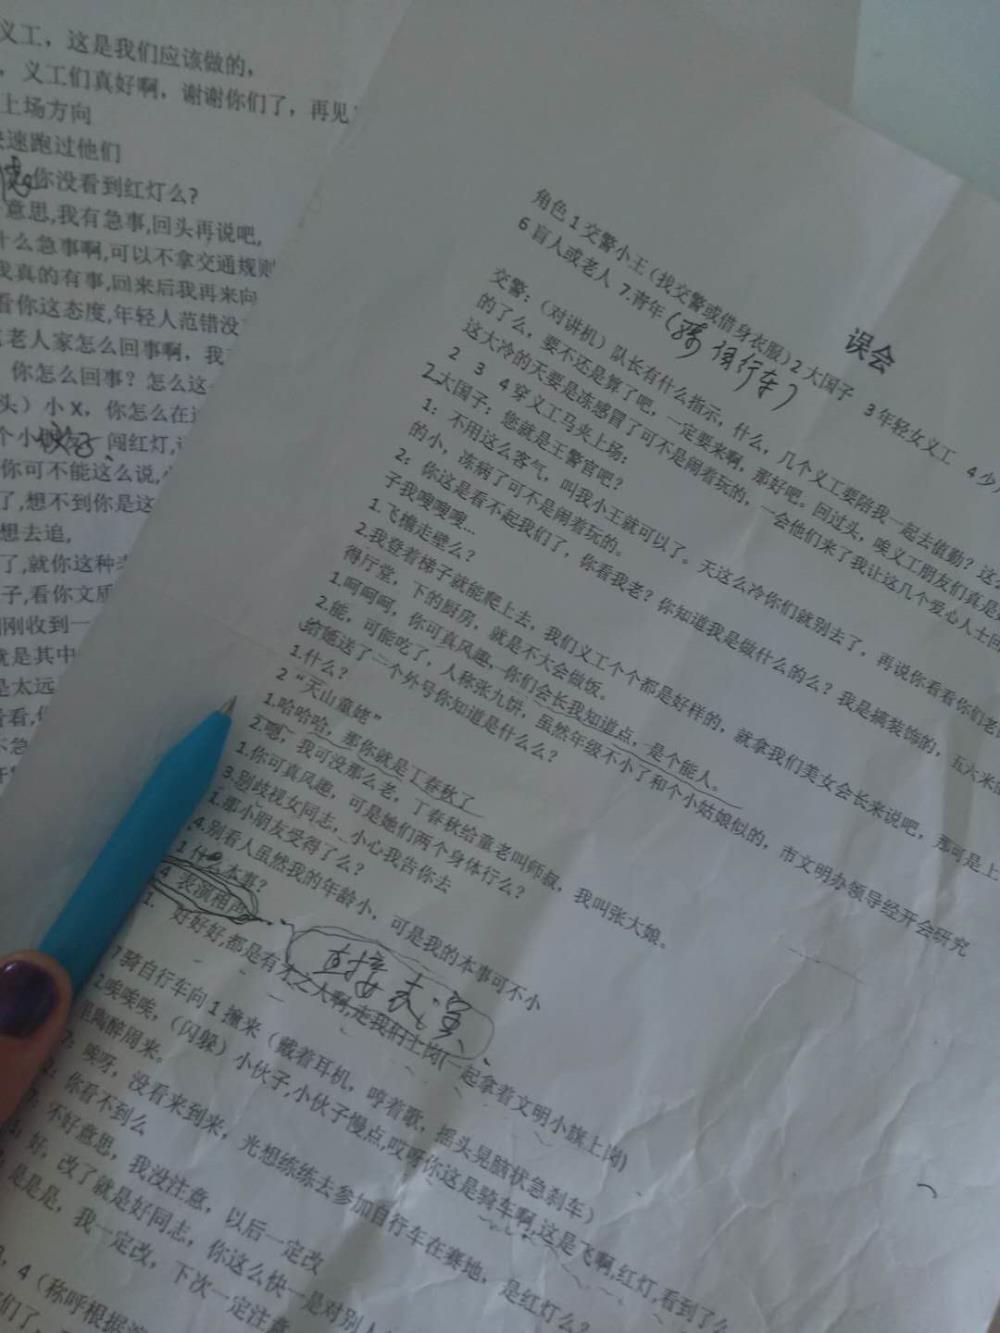 义工，这是我们应该做的，
，义工们真好啊，谢谢你们了，再见
上场方向
速跑过他们
你没看到红灯么？
意思,我有急事,回头再说吧,
什么急事啊,可以不拿交通规则
我真的有事,回来后我再来向
看你这态度,年轻人范错没
老人家怎么回事啊，我
你怎么回事？怎么这
头）小X，你怎么在这
个小 闯红灯,
你可不能这么说,
了,想不到你是这
想去追,
了,就你这种
子,看你文质
刚收到一
就是其中
是太远
看看,
误会
角色1交警小王（找交警或借身衣服）2大国子 3年轻女义工 4少
6盲人或老人 7.青年（骑自行车）
交警：（对讲机）队长有什么指示，什么，几个义工要陪我一起去值勤？这
的了么，要不还是算了吧，一定要来啊，那好吧。回过头，唉义工朋友们真是
这大冷的天要是冻感冒了可不是闹着玩的，一会他们来了我让这几个爱心人士
2 3 4穿义工马夹上场：
2.大国子：您就是王警官吧？
1：不用这么客气，叫我小王就可以了。天这么冷你们就别去了，再说你看看你们老
的小，冻病了可不是闹着玩的。
2：你这是看不起我们了，你看我老？你知道我是做什么的么？我是搞装饰的，五六米
子我嗖嗖嗖…
1.飞檐走壁么？
2.我登着梯子就能爬上去，我们义工个个都是好样的，就拿我们美女会长来说吧，那可是上
得厅堂，下的厨房，就是不大会做饭。
1.呵呵呵，你可真风趣，你们会长我知道点，是个能人。
2.能，可能吃了，人称张九饼，虽然年级不小了和个小姑娘似的，市文明办领导经开会研究
给她送了一个外号你知道是什么么？
1.什么？
2“天山童姥”
1.哈哈哈，那你就是丁春秋了
2.嗯，我可没那么老，丁春秋给童老叫师叔，我叫张大娘。
1.你可真风趣，可是她们两个身体行么？
3.别歧视女同志，小心我告你去
1.那小朋友受得了么？
4.别看人虽然我的年龄小，可是我的本事可不小
1 什么本事？
4 表演相声
直接表演
1. 好好好,都是有才之人啊,走我们上岗(一起拿着文明小旗上岗)
7骑自行车向1撞来（戴着耳机，哼着歌，摇头晃脑状急刹车）
2唉唉唉，（闪躲）小伙子,小伙子慢点,哎呀你这是骑车啊,这是飞啊,红灯,看到了么
陶醉周来。
7：唉呀，没看来到来，光想练练去参加自行车在赛地，是红灯么？
2：你看不到么
7：不好意思，我没注意，以后一定改
好，改了就是好同志，你这么快一是对别人
是是是，我一定改，下次一定注意
，4（称呼根据
们了，